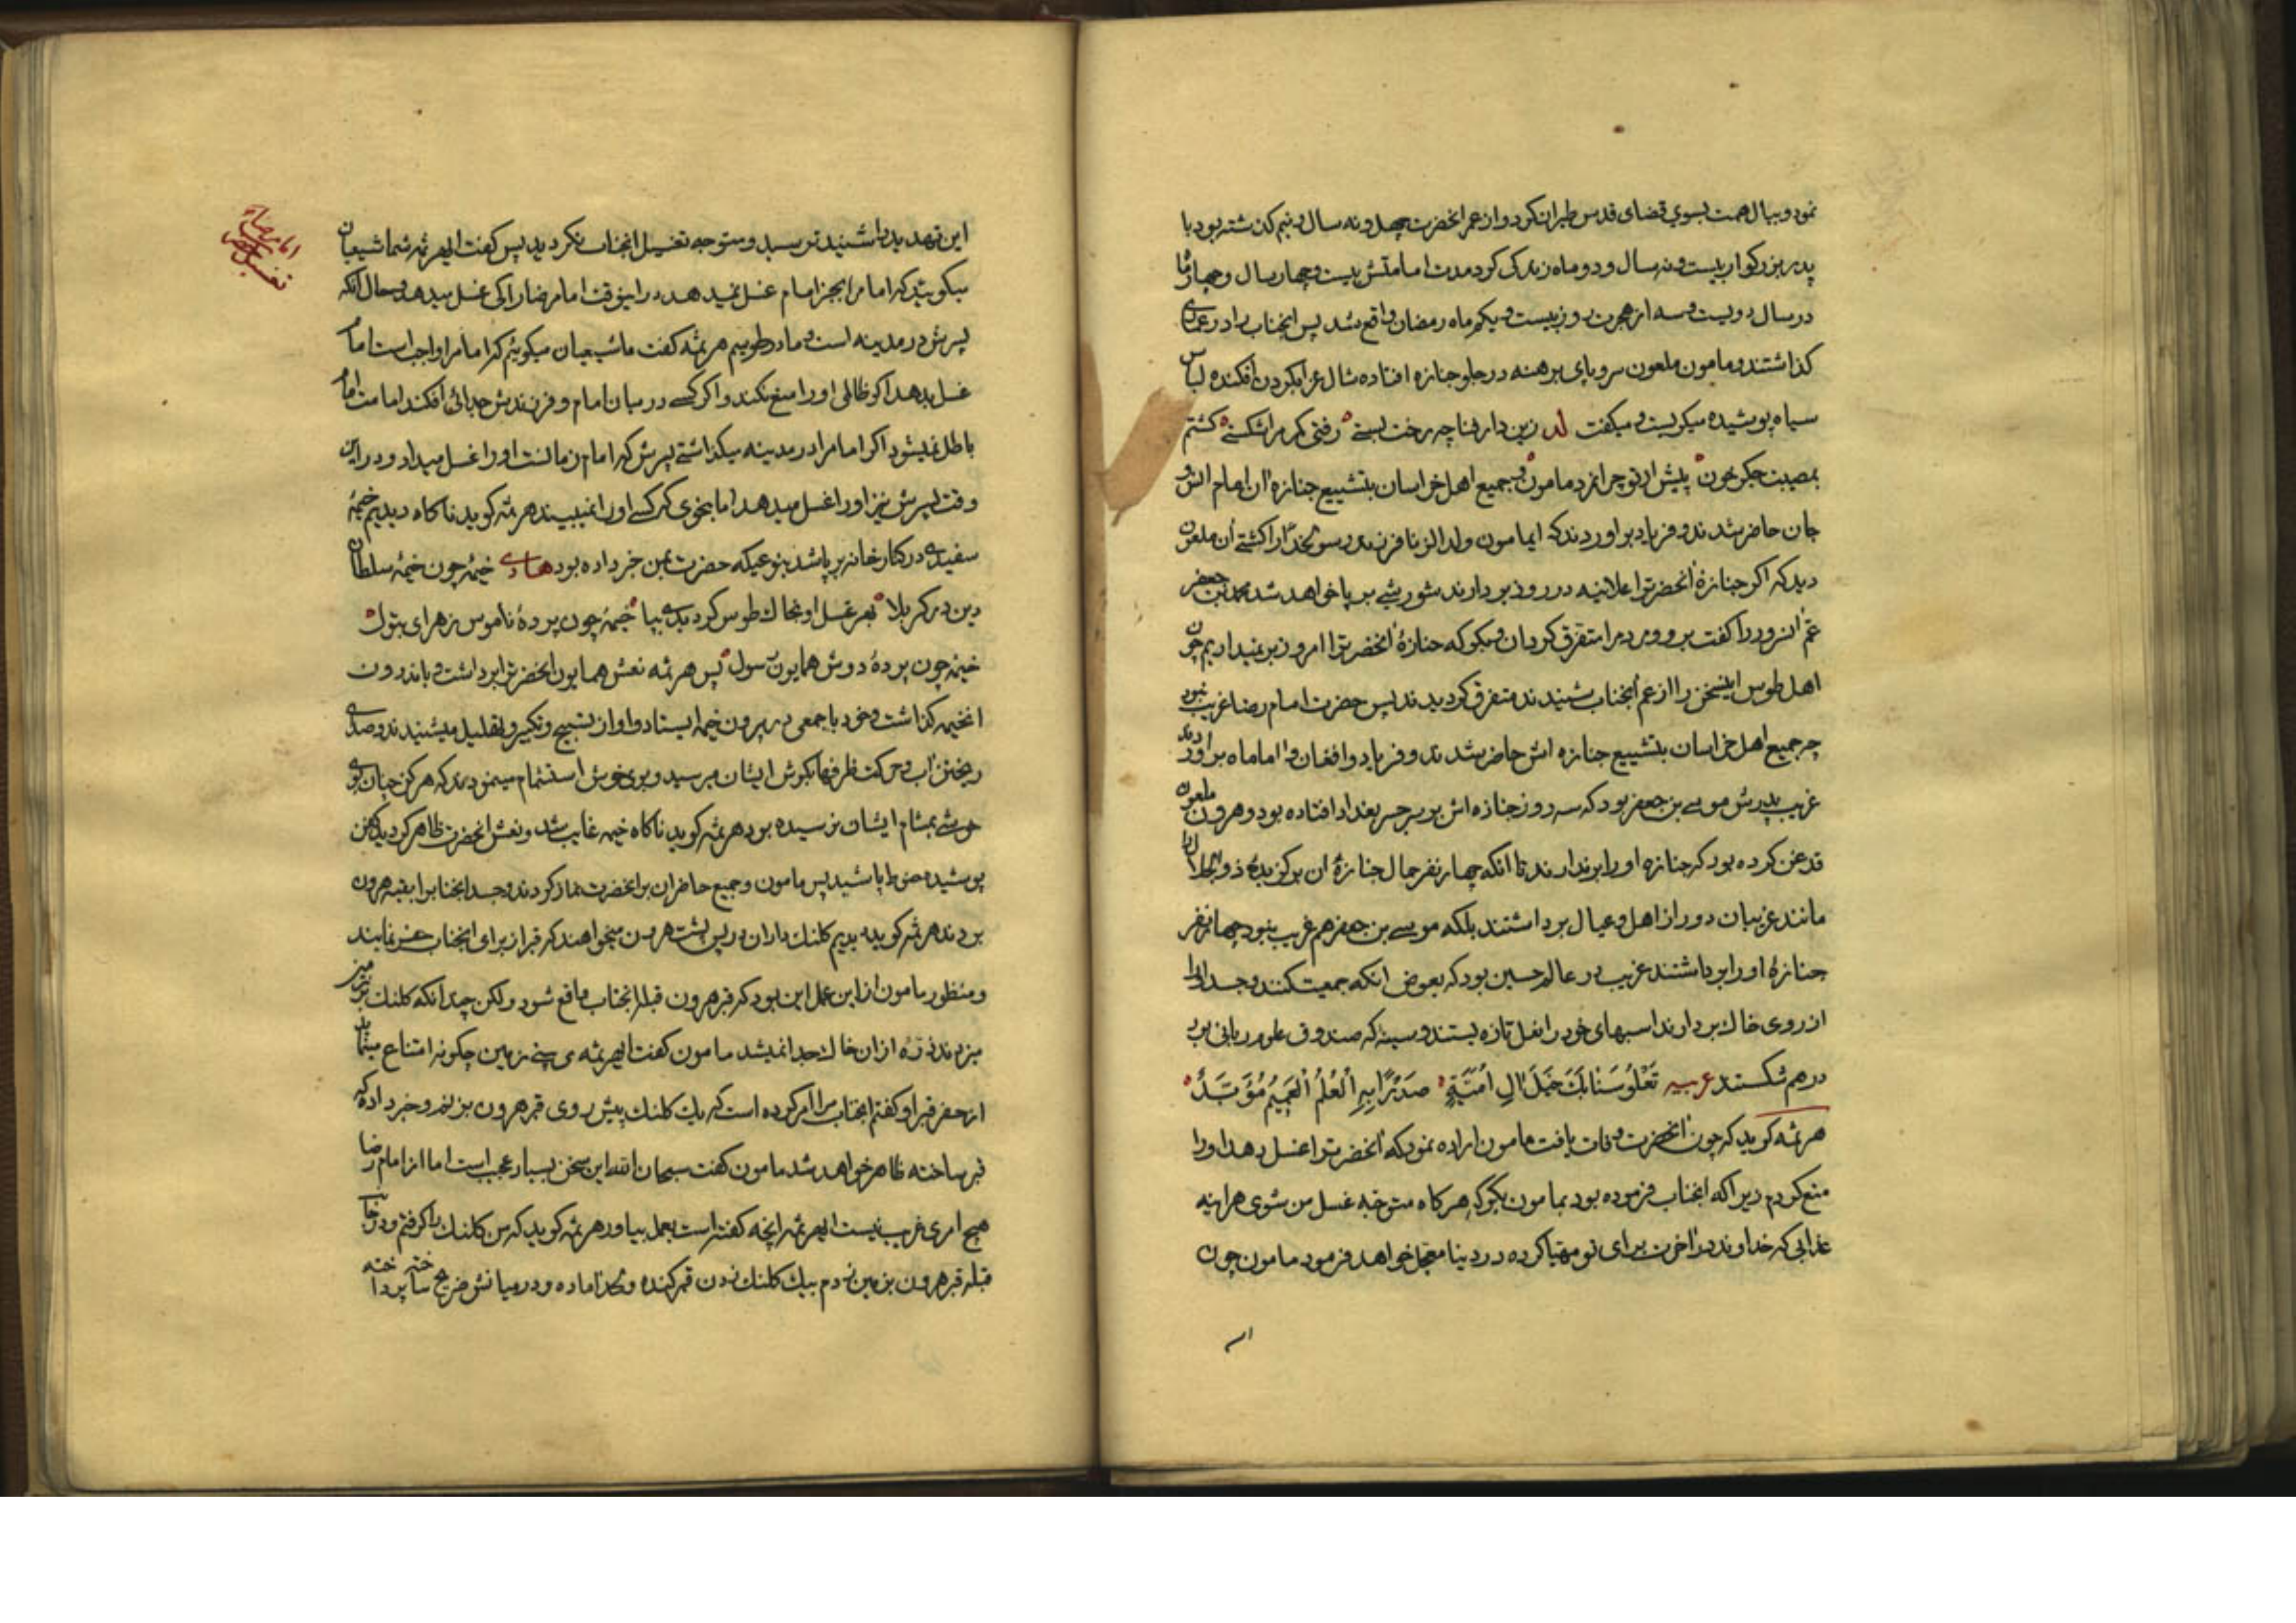 نمود و ببال همت بسوي قضای قدس طیران کرد و از عمر انحضرت چهل و نه سال و نیم کذشته بود با
پدر بزرکوار بیست و نه سال و دو ماه زندکی کرد مدت امامتش بیست و چهار سال و چهار ماه
در سال دویست و سه از هجرت روز بیست و یکم ماه رمضان واقع شد پس انجناب را در عماری
کذاشتند و مامون ملعون سر و پای برهنه در جلو جنازه افتاده شال عزا بکردن افکنده لباس
سیاه پوشیده میکریست و میکفت زین دار فنا چه رخت بستی رفتی کمر مرا شکستی کشتم
بمصیبت جکر خون پیش از تو چرا نمرد مامون و جمیع اهل خراسان بتشییع جنازه ان امام انس و
جان حاضر شدند و فریاد براوردند که ایمامون ولد الزنا فرزند رسول خدا را کشتی ان ملعون
دید که اکر جنازهٔ انحضرترا علانیه در روز بردارند شورشی بر پا خواهد شد محمد بن جعفر
عم انسرور را کفت برو و مردم را متفرق کردان و بکو که جنازهٔ انحضرترا امروز بر نمیداریم چون
اهل طوس اینسخن را از عم انجناب شنیدند متفرق کردیدند پس حضرت امام رضا غریب نبود
چه جمیع اهل خراسان بتشییع جنازه اش حاضر شدند و فریاد و افغان و اماماه براوردند
غریب پدرش موسی بن جعفر بود که سه روز جنازه اش بر سر جسر بغداد افتاده بود و هرون ملعون
قدغن کرده بود که جنازه او را برندارند تا انکه چهار نفر حمال جنازهٔ ان برکزیدهٔ ذو الجلال را
مانند غریبان دور از اهل و عیال برداشتند بلکه موسی بن جعفر هم غریب نبود چهار نفر
جنازهٔ او را برداشتند غریب در عالم حسین بود که بعوض انکه جمعیت کنند و جسد او را
از روی خاک بردارند اسبهای خود را نعل تازه بستند و سینهٔ که صندوق علوم ربانی بود
در هم شکستند عربیه تعلو سنابک خیل ال امیة صدرا به العلم العمیم مؤبد
هرثمه کوید که چون انحضرت وفات یافت مامون اراده نمود که انحضرترا غسل دهد او را
منع کردم زیرا که انجناب فرموده بود بمامون بکو که هر کاه متوجه غسل من شوی هراینه
عذابی که خداوند در اخرت برای تو مهیا کرده در دنیا معجل خواهد فرمود مامون چون
این تهدید را شنید ترسید و متوجه تغسیل انجناب نکردید پس کفت ایهرثمه شما شیعیان
میکوئید که امام را بجز امام غسل نمیدهد در اینوقت امام رضا را کی غسل میدهد و حال انکه
پسرش در مدینه است و ما در طوسیم هرثمه کفت ما شیعیان میکوئیم که امام را واجبست امام
غسل بدهد اکر ظالمی او را منع نکند و اکر کسی در میان امام و فرزندش جدائی افکند امامت امام
باطل نمیشود اکر امام را در مدینه میکذاشتی پسرش که امام زمانست او را غسل میداد و در این
وقت پسرش نیز او را غسل میدهد اما بنحوی که کسی او را نمیبیند هرثمه کوید ناکاه دیدیم خیمهٔ
سفیدی در کنار خانه بر پا شد بنوعیکه حضرت بمن خبر داده بود خیمهٔ چون خیمهٔ سلطان
دین در کربلا بهر غسل او بخاک طوس کردیدی بپا خیمهٔ چون پردهٔ ناموس زهرای بتول
خیمهٔ چون پردهٔ دوش همایون رسول پس هرثمه نعش همایون انحضرترا برداشت و باندرون
انخیمه کذاشت و خود با جمعی در بیرون خیمه ایستاد و اواز تسبیح و تکبیر و تهلیل میشنیدند و صدای
ریختن اب و حرکت ظرفها بکوش ایشان میرسید و بوی خوش استشمام مینمودند که هرکز چنان بوی
خوشی بمشام ایشان نرسیده بود هرثمه کوید ناکاه خیمه غایب شد و نعش انحضرت ظاهر کردید کفن
پوشیده حنوط پاشیده پس مامون و جمیع حاضران بر انحضرت نماز کردند و جسد انجنابرا بقبهٔ هرون
بردند هرثمه کوید دیدیم کلنک داران در پس پشت هرون میخواهند که قبر از برای انجناب حفر نمایند
و منظور مامون از این عمل این بود که قبر هرون قبلهٔ انجناب واقع شود ولکن چندانکه کلنک بر زمین
میزدند ذرهٔ از ان خاک جدا نمیشد مامون کفت ایهرثمه می بینی زمین چکونه امتناع مینماید
از حفر قبر او کفتم انجناب مرا امر کرده است که یک کلنک پیش روی قبر هرون بزنم و خبر داده که
قبر ساخته ظاهر خواهد شد مامون کفت سبحان الله این سخن بسیار عجب است اما از امام رضا
هیچ امری غریب نیست ایهرثمه انچه کفته است بعمل بیاور هرثمه کوید که من کلنک را کرفتم و در جانب
قبلهٔ قبر هرون بر زمین زدم بیک کلنک زدن قبر کنده و لحد اماده و در میانش ضریح ساخته پرداخته